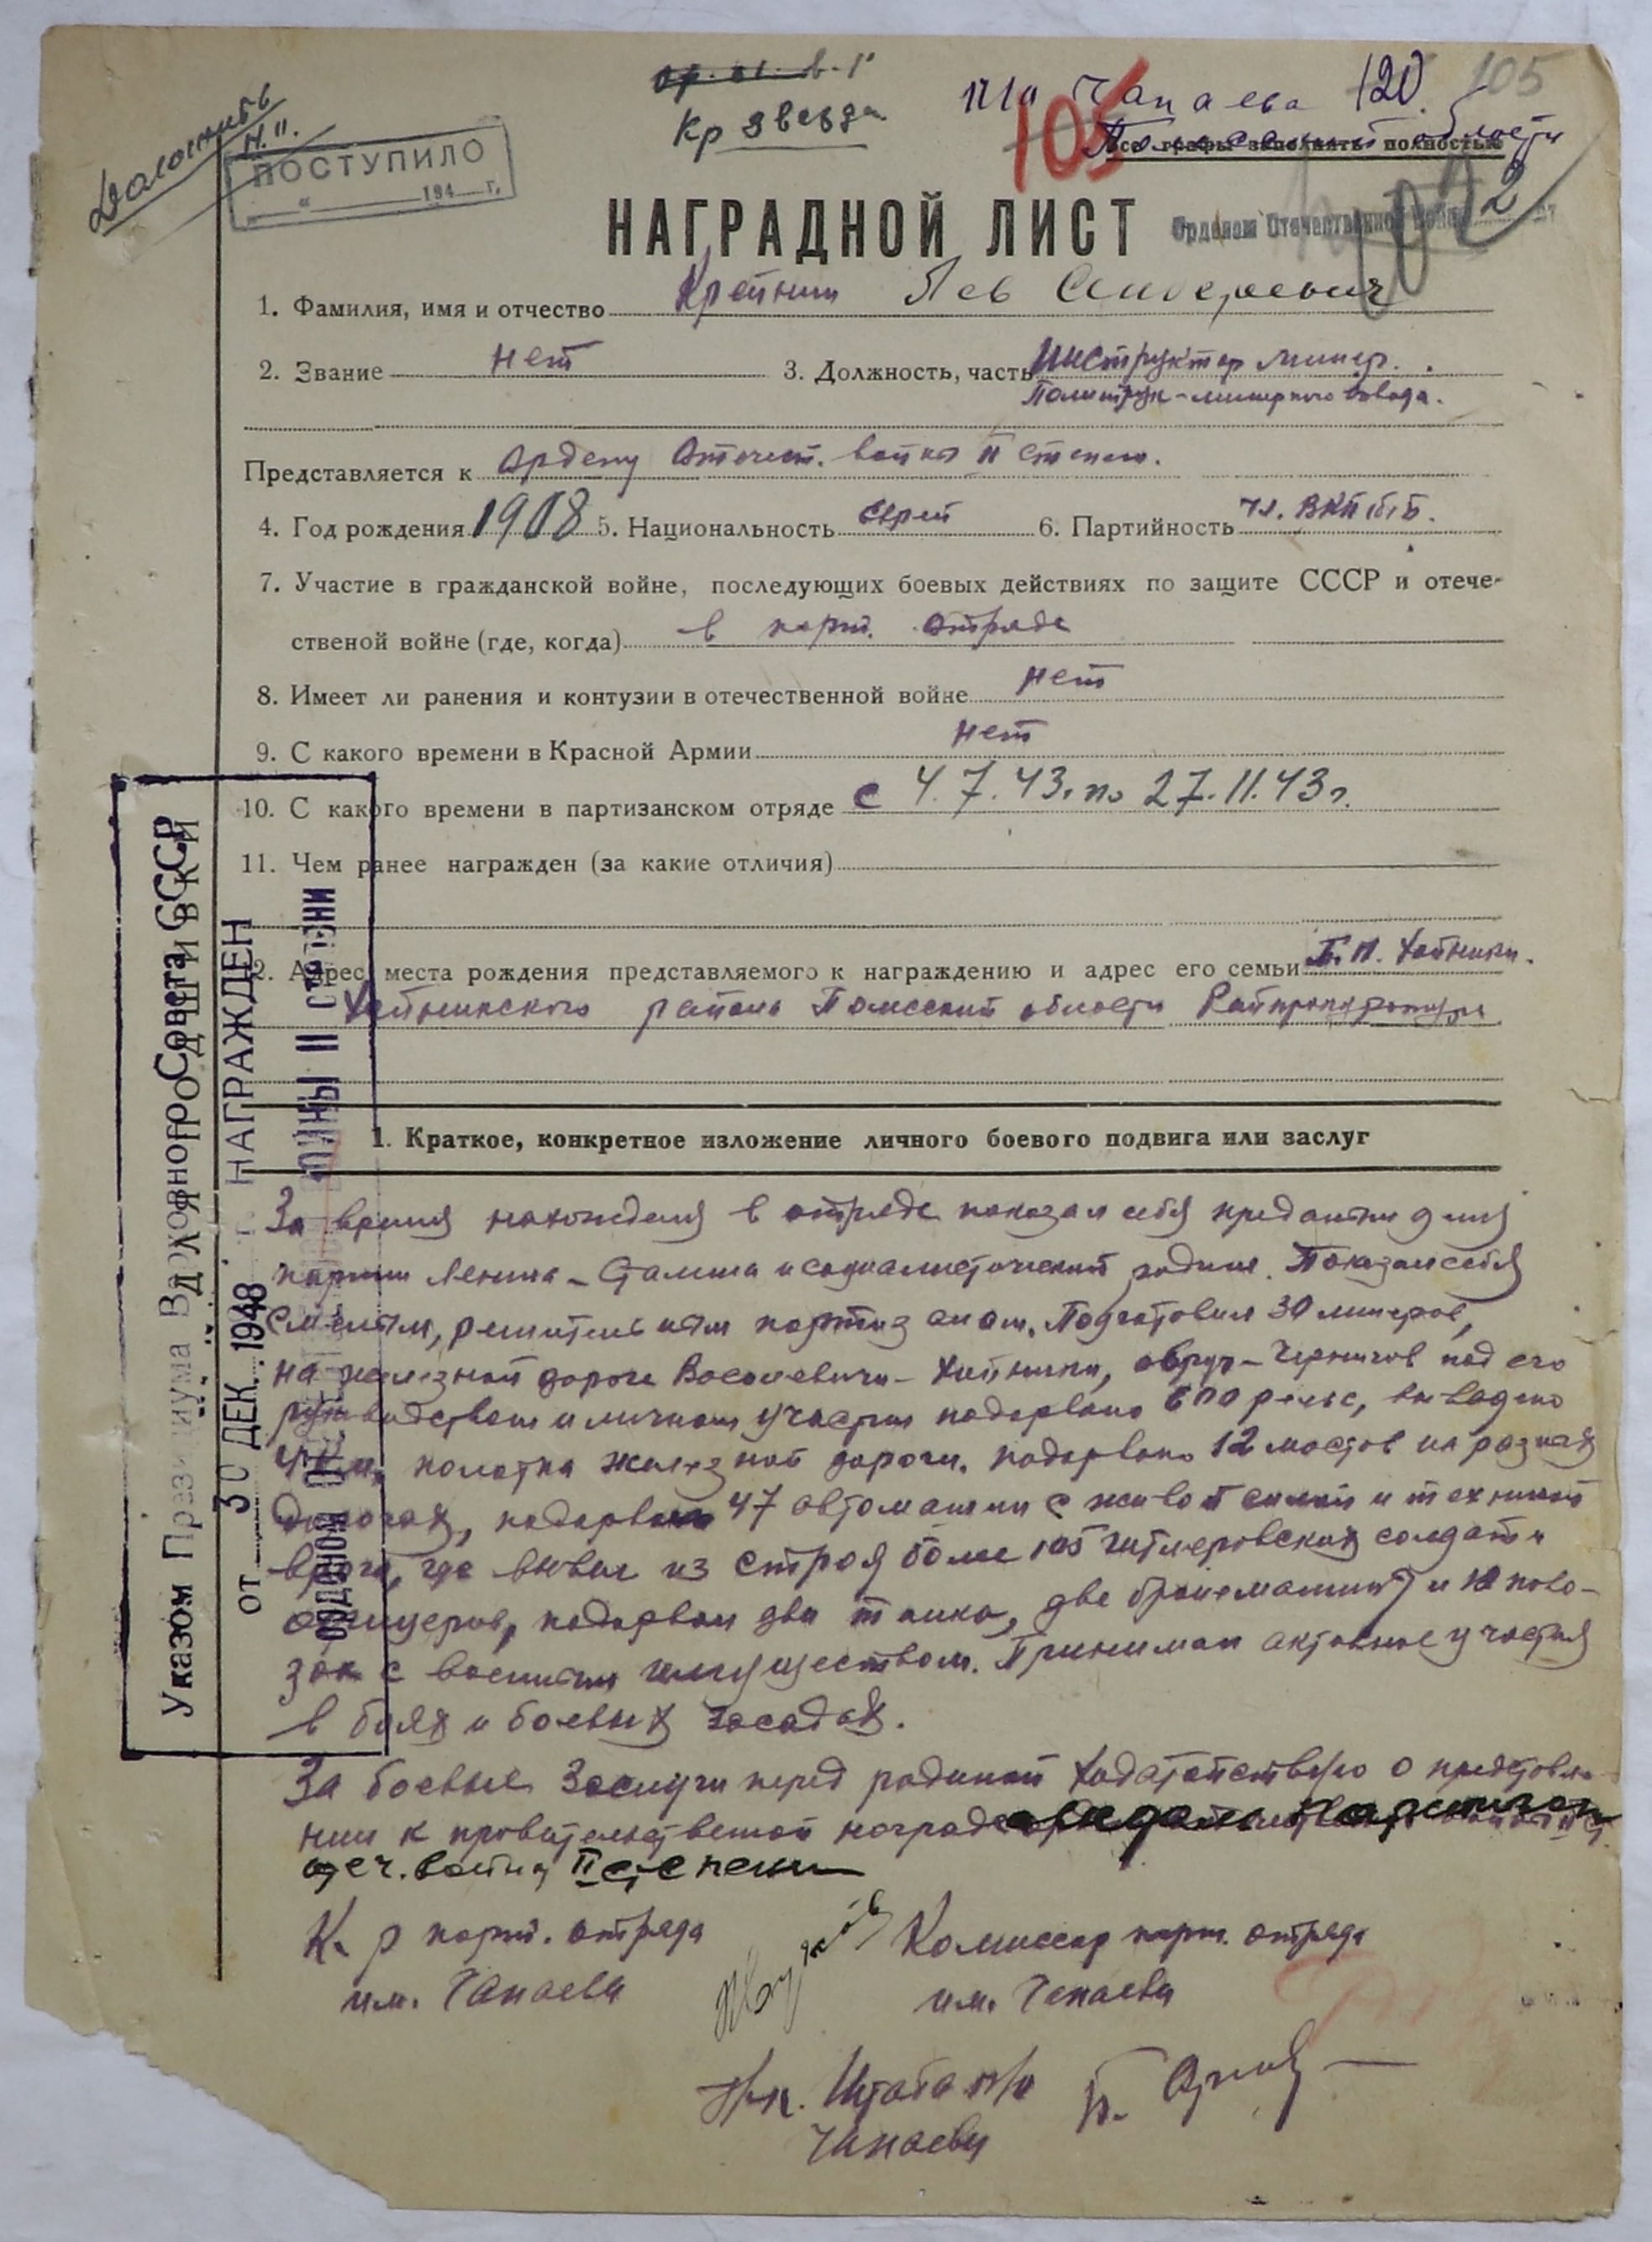 Доложить
Н.П.
ПОСТУПИЛО
„ “ 194 г.
Кр Звезда
п/о Чапаева 120. 105
105
Полесской области
Все графы заполнять полностью
НАГРАДНОЙ ЛИСТ
Орденом Отечественной
1. Фамилия, имя и отчество Лев
2. Звание нет 3. Должность, часть Инструктор минер.
Политрук-минерного взвода.
Представляется к Ордену Отечест. войны II степени.
4. Год рождения 1908 5. Национальность Еврей 6. Партийность чл. ВКП(б)
7. Участие в гражданской войне, последующих боевых действиях по защите СССР и отече-
ственой войне (где, когда) в парт. отряде
8. Имеет ли ранения и контузии в отечественной войне нет
9. С какого времени в Красной Армии нет
10. С какого времени в партизанском отряде с 4.7.43. по 27.11.43г.
11. Чем ранее награжден (за какие отличия)
12. Адрес места рождения представляемого к награждению и адрес его семьи Хойники.
Хойникского района Полесской области
1. Краткое, конкретное изложение личного боевого подвига или заслуг
За время нахождения в отряде показал себя преданным делу
партии Ленина-Сталина и социалистической родине. Показал себя
смелым, решительным партизаном. Подготовил 30 минеров,
на железной дороге Василевичи-Хойники, Овруч-Чернигов под его
руководством и личном участии подорвано 600 рельс, выведено
полотна железной дороги. подорвано 12 мостов на разных
дорогах, подорвано 47 автомашин с живой силой и техникой
врага, где вывел из строя более 105 гитлеровских солдат и
офицеров, подорвал два танка, две бронемашины и 12 пово-
зок с военным имуществом. Принимал активное участие
в боях и боевых засадах.
За боевые заслуги перед родиной ходатайствую о представле-
нии к правительственной награде
отеч. войны II степени
К-р парт. отряда
им. Чапаева
Комиссар парт. отряда
им. Чапаева
Нач. Штаба п/о
Чапаева
Указом Президиума Верховного Совета СССР
от 30 ДЕК. 1948 г. НАГРАЖДЕН
орденом Отечественной войны II степени